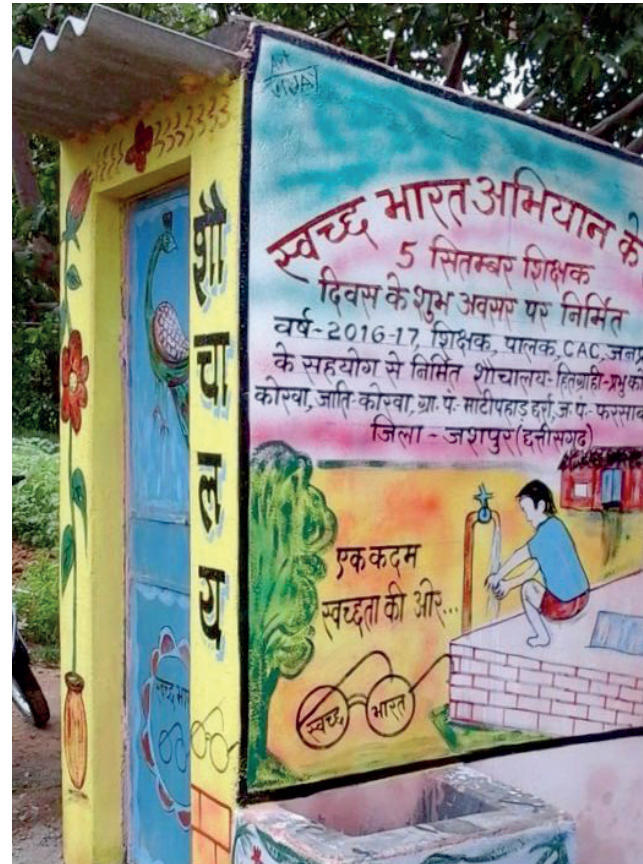 शौचालय
स्वच्छ भारत अभियान के
5 सितम्बर शिक्षक
दिवस के शुभ अवसर पर निर्मित
वर्ष-2016-17, शिक्षक, पालक, CAC, जनप
के सहयोग से निर्मित शौचालय-हितग्राही-प्रभु को
कोरवा, जाति-कोरवा, ग्रा.पं.-माटीपहाड़ छर्रा, ज.पं.-फरसाब
जिला-जशपुर (छत्तीसगढ़)
एक कदम
स्वच्छता की ओर...
स्वच्छ भारत
स्वच्छ भार